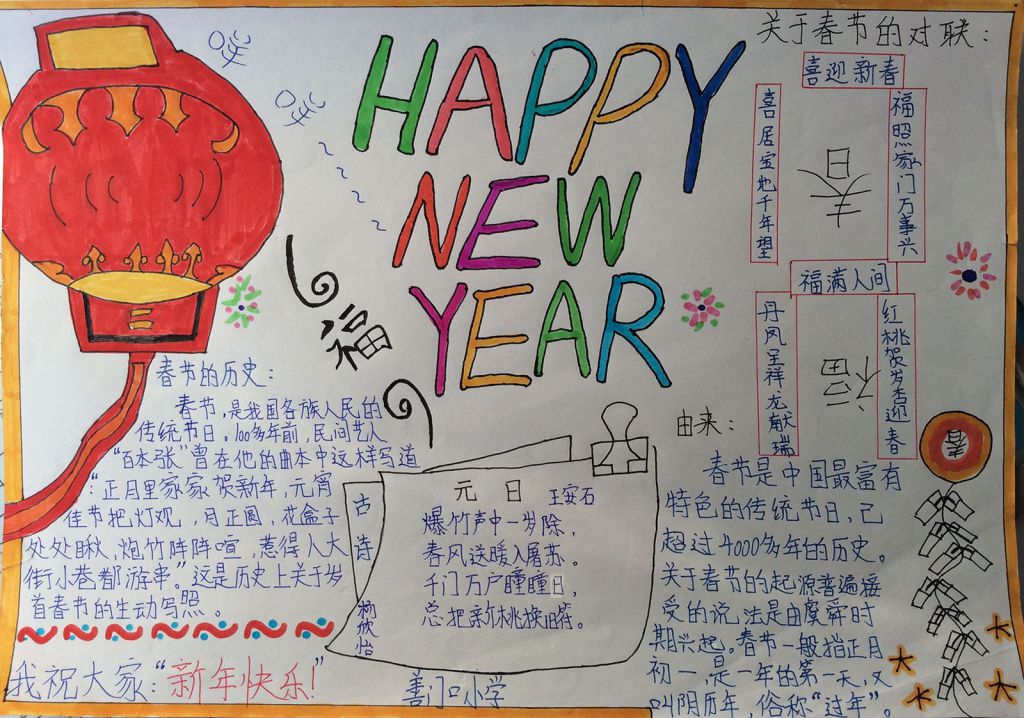 HAPPY
NEW
YEAR
福
关于春节的对联：
喜迎新春
喜居宝地千年望
福照家门万事兴
春
福满人间
丹凤呈祥龙献瑞
红桃贺岁杏迎春
福
春节的历史：
春节，是我国各族人民的
传统节日。100多年前，民间艺人
“百本张”曾在他的曲本中这样写道
：“正月里家家贺新年，元宵
佳节把灯观，月正圆，花盒子
处处瞅，炮竹阵阵喧，惹得人大
街小巷都游串”。这是历史上关于岁
首春节的生动写照。
我祝大家：“新年快乐！”
古诗
杨欣怡
元日 王安石
爆竹声中一岁除，
春风送暖入屠苏。
千门万户瞳瞳日，
总把新桃换旧符。
善门口小学
由来：
春节是中国最富有
特色的传统节日，己
超过4000多年的历史。
关于春节的起源普遍接
受的说法是由虞舜时
期兴起。春节一般指正月
初一，是一年的第一天，又
叫阴历年，俗称“过年”。
春